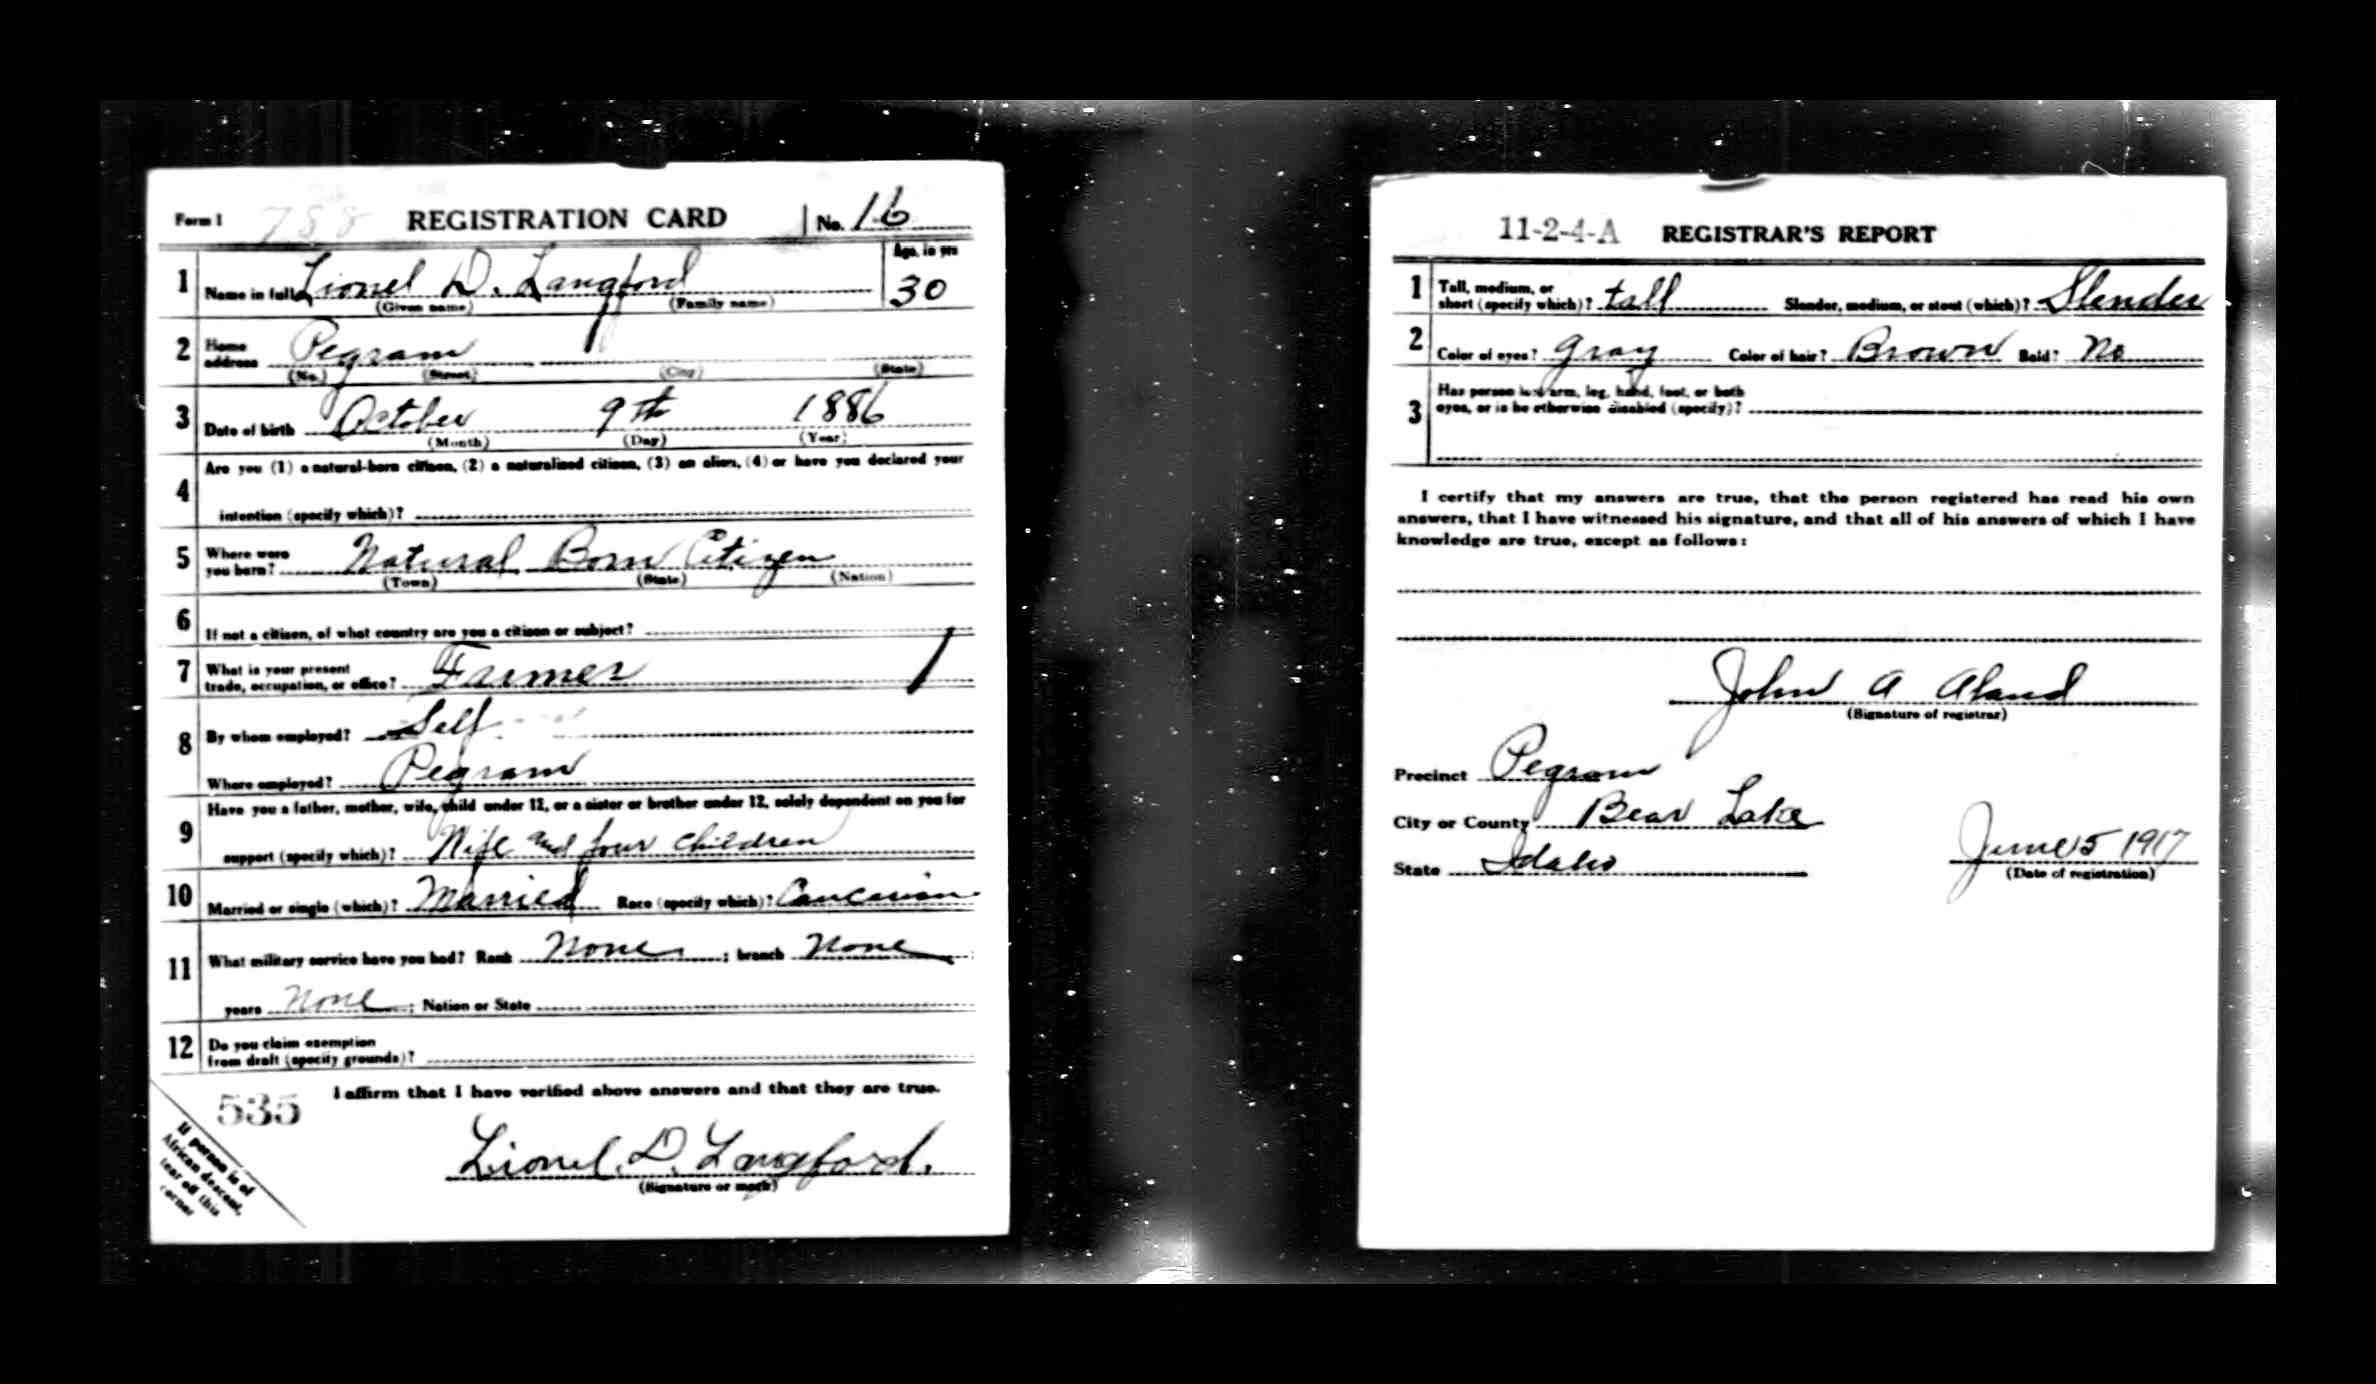 Form 1 788 REGISTRATION CARD No. 16
1 Name in full Lionel D. Langford Age, in yrs 30
(Given name) (Family name)
2 Home address Pegram
(No.) (Street) (City) (State)
3 Date of birth October 9th 1886
(Month) (Day) (Year)
4 Are you (1) a natural-born citizen, (2) a naturalized citizen, (3) an alien, (4) or have you declared your
intention (specify which)?
5 Where were you born? Natural Born Citizen
(Town) (State) (Nation)
6 If not a citizen, of what country are you a citizen or subject?
7 What is your present trade, occupation, or office? Farmer
8 By whom employed? Self
Where employed? Pegram
9 Have you a father, mother, wife, child under 12, or a sister or brother under 12, solely dependent on you for
support (specify which)? Wife and four children
10 Married or single (which)? Married Race (specify which)? Caucasian
11 What military service have you had? Rank None ; branch None
years None ; Nation or State
12 Do you claim exemption
from draft (specify grounds)?
I affirm that I have verified above answers and that they are true.
535
Lionel D. Langford.
(Signature or mark)
If person is of
African descent,
tear off this
corner
11-2-4-A REGISTRAR'S REPORT
1 Tall, medium, or
short (specify which)? tall Slender, medium, or stout (which)? Slender
2 Color of eyes? gray Color of hair? Brown Bald? No
3 Has person lost arm, leg, hand, foot, or both
eyes, or is he otherwise disabled (specify)?
I certify that my answers are true, that the person registered has read his own
answers, that I have witnessed his signature, and that all of his answers of which I have
knowledge are true, except as follows:
John A Aland
(Signature of registrar)
Precinct Pegram
City or County Bear Lake
State Idaho June 5 1917
(Date of registration)